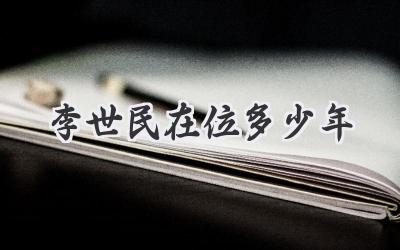 李世民在位多少年